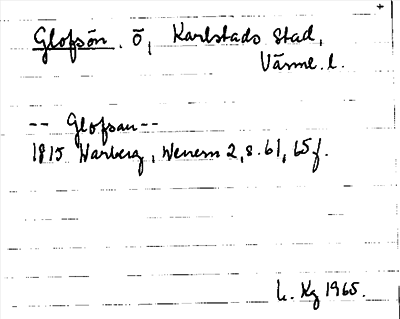 Glofsön. Ö, Karlstads stad,
Värml. l.
-- Glofsau --
1815 Warberg, Wenern 2, s. 61, 65 f.
L. Kg 1965.